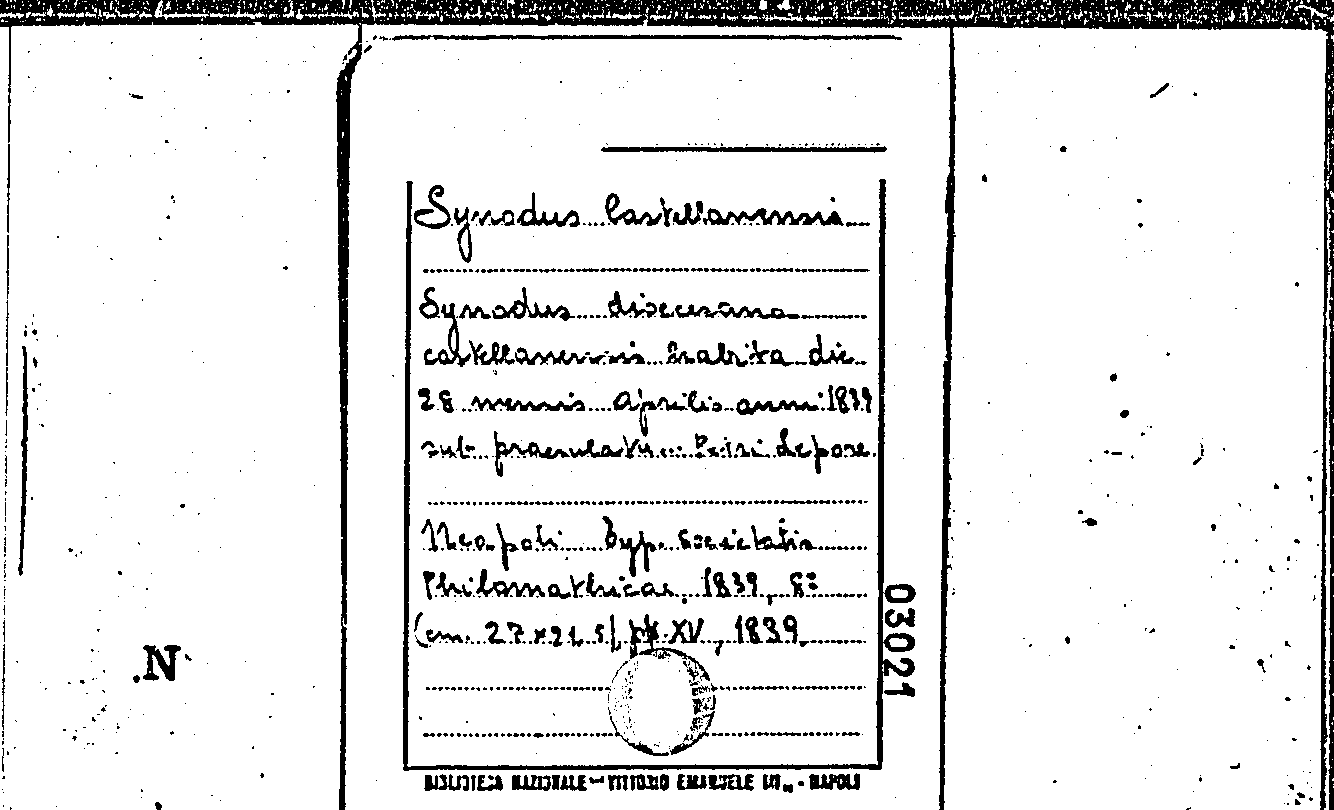 Synodus Castellanensis
Synodus dioecesana
castellanensis habita die
28 mensis Aprilis anni 1839
sub praesulatu Petri Lepore
Neapoli Typ. Societatis
Philomathicae, 1839, 8°
(cm. 27 x 21.5) pp. XV, 1839
03021
.N
BIBLIOTECA NAZIONALE - VITTORIO EMANUELE III„ - NAPOLI